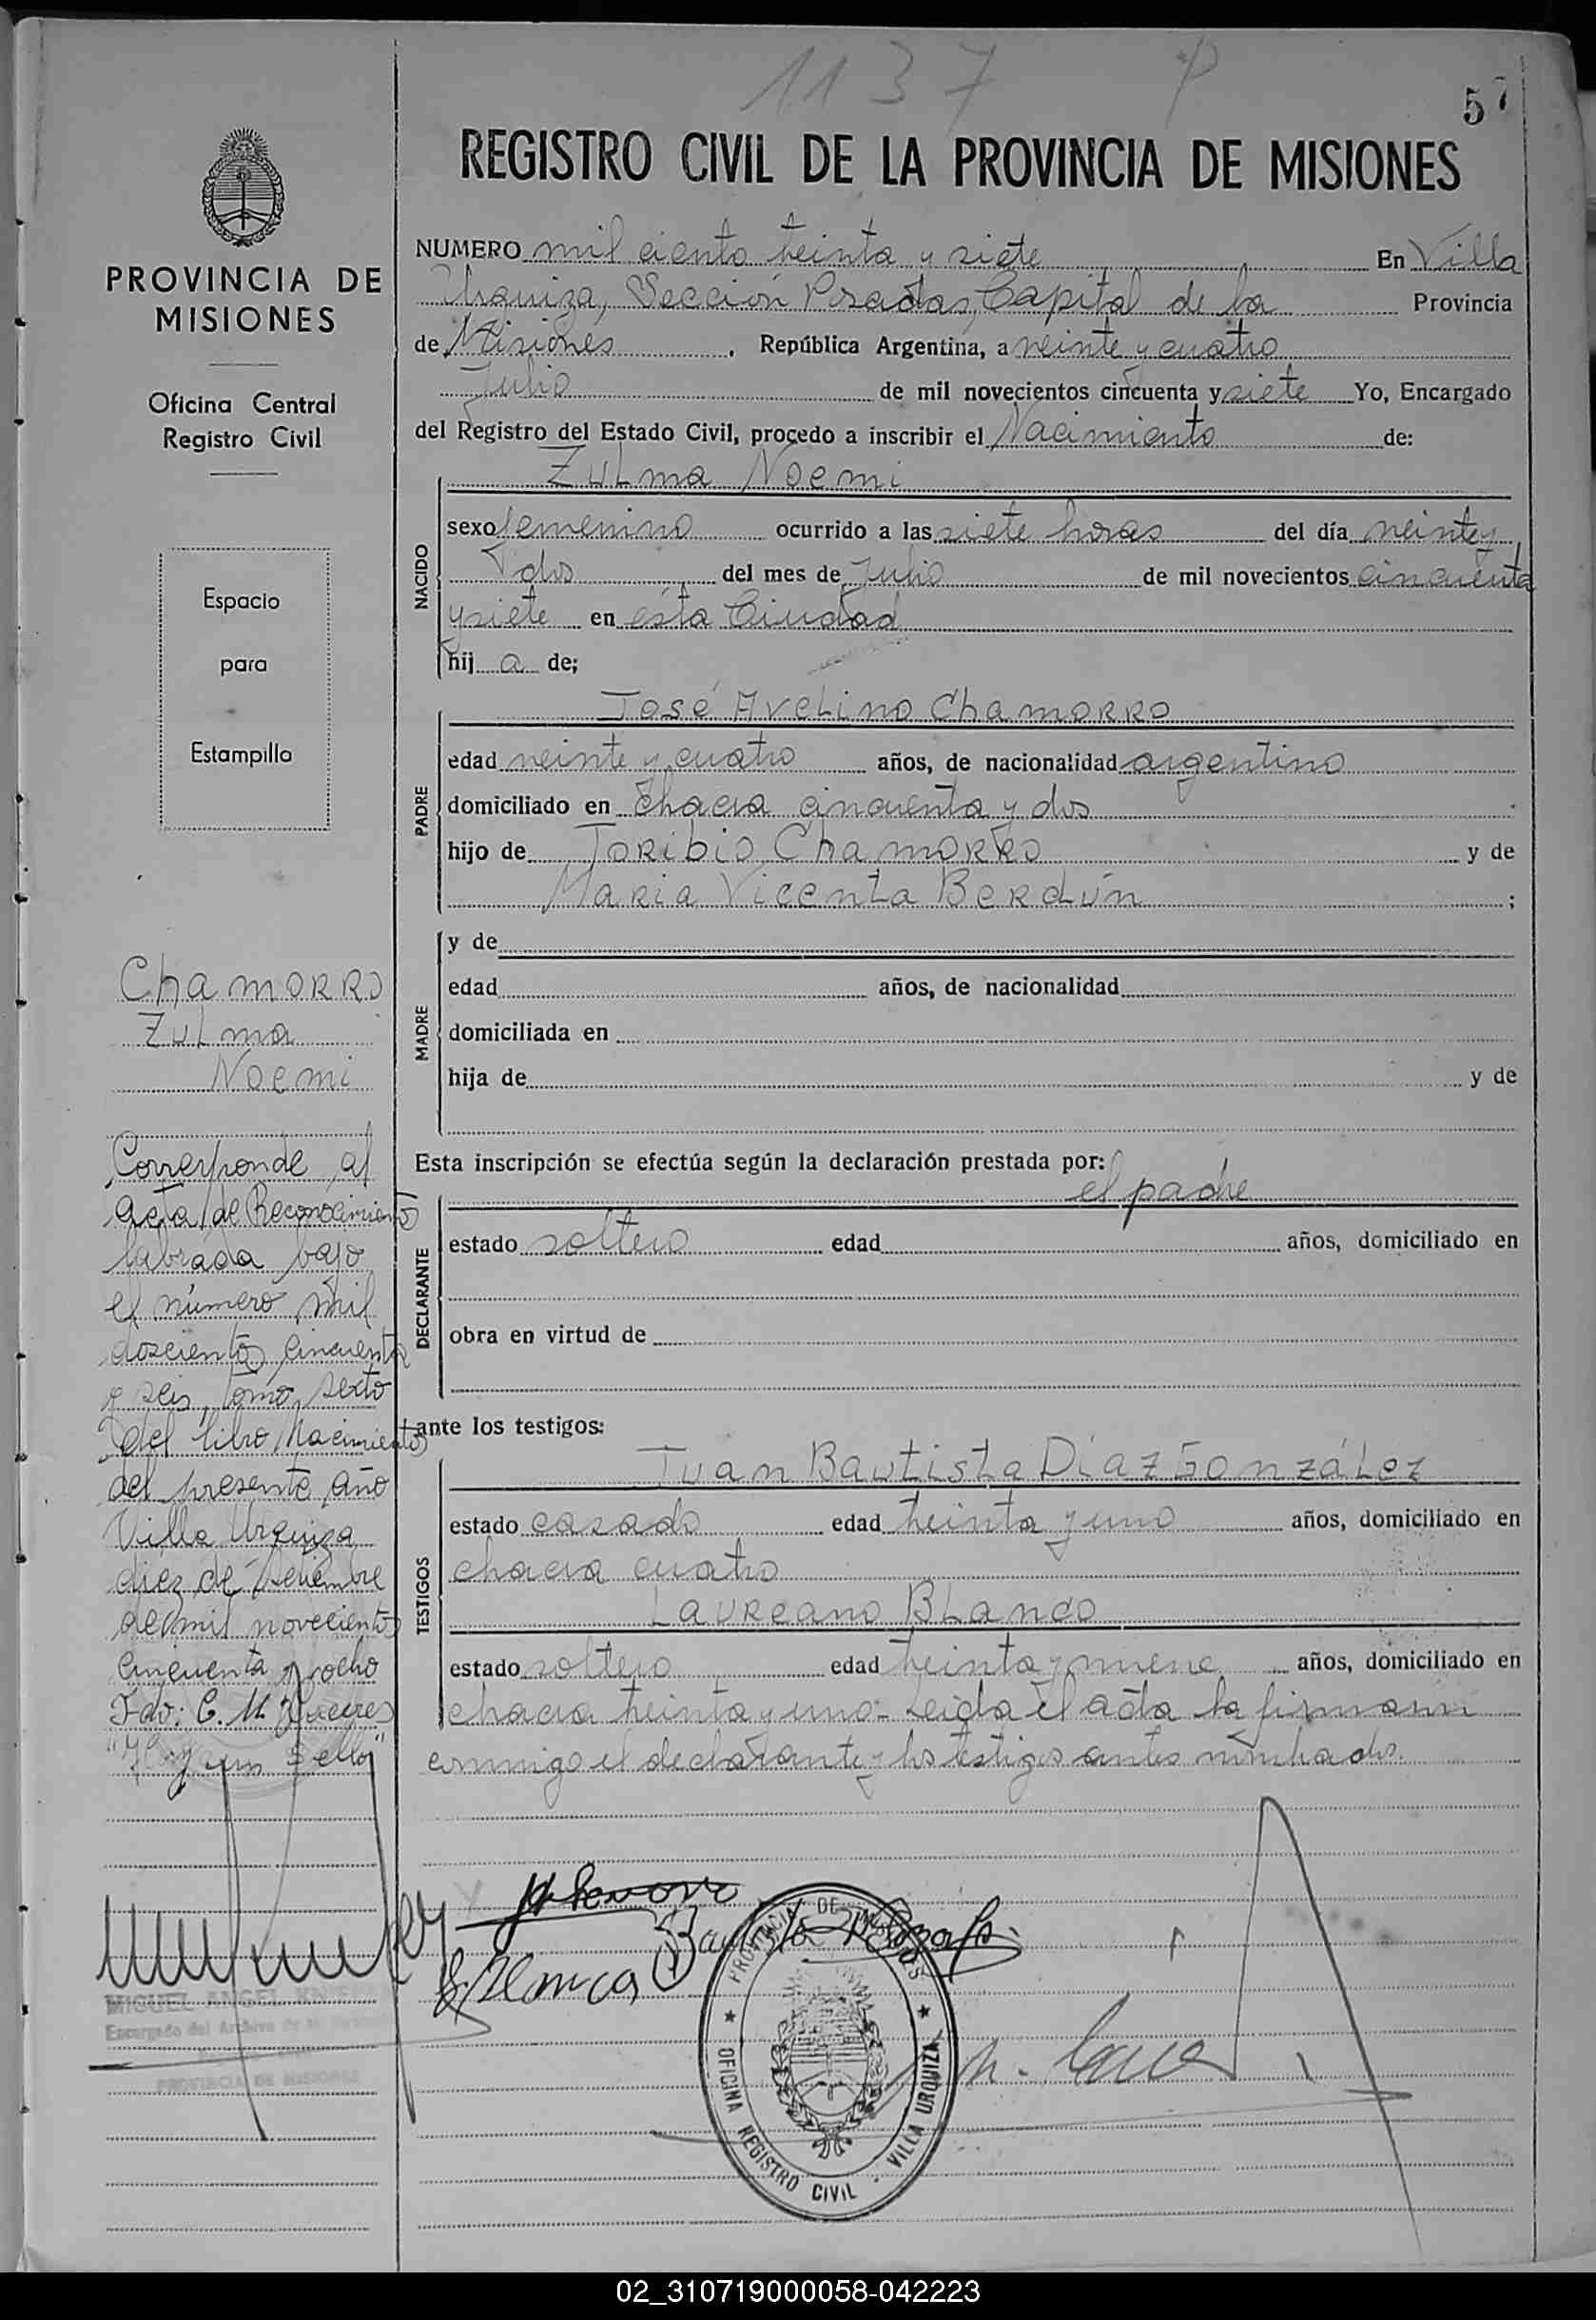 1137
57
REGISTRO CIVIL DE LA PROVINCIA DE MISIONES
PROVINCIA DE
MISIONES
Oficina Central
Registro Civil
Espacio
para
Estampilla
Chamorro
Zulma
Noemi
Corresponde al
acta de Reconocimiento
labrada bajo
el número mil
doscientos cincuenta
y seis, tomo sexto
del libro Nacimientos
del presente año
Villa Urquiza
diez de Setiembre
de mil novecientos
cincuenta y ocho
Fdo: C. M.
"Hay un sello"
MIGUEL ANGEL
Encargado del Archivo de
PROVINCIA DE MISIONES
NUMERO mil ciento treinta y siete En Villa
Urquiza, Sección Posadas, Capital de la Provincia
de Misiones, República Argentina, a veinte y cuatro
Julio de mil novecientos cincuenta y siete Yo, Encargado
del Registro del Estado Civil, procedo a inscribir el Nacimiento de:
NACIDO
Zulma Noemi
sexo femenino ocurrido a las siete horas del día veinte y
dos del mes de Julio de mil novecientos cincuenta
y siete en ésta Ciudad
hij a de;
PADRE
José Avelino Chamorro
edad veinte y cuatro años, de nacionalidad argentino
domiciliado en chacra cincuenta y dos
hijo de Toribio Chamorro y de
Maria Vicenta Berdún ;
MADRE
y de
edad años, de nacionalidad
domiciliada en
hija de y de
Esta inscripción se efectúa según la declaración prestada por:
DECLARANTE
el padre
estado soltero edad años, domiciliado en
obra en virtud de
ante los testigos:
TESTIGOS
Juan Bautista Díaz González
estado casado edad treinta y uno años, domiciliado en
chacra cuatro
Laureano Blanco
estado soltero edad treinta y nueve años, domiciliado en
chacra treinta y uno - Leída el acta la firmann
conmigo el declarante y los testigos antes nombrados.
PROVINCIA DE MISIONES
OFICINA REGISTRO CIVIL · VILLA URQUIZA
02_310719000058-042223